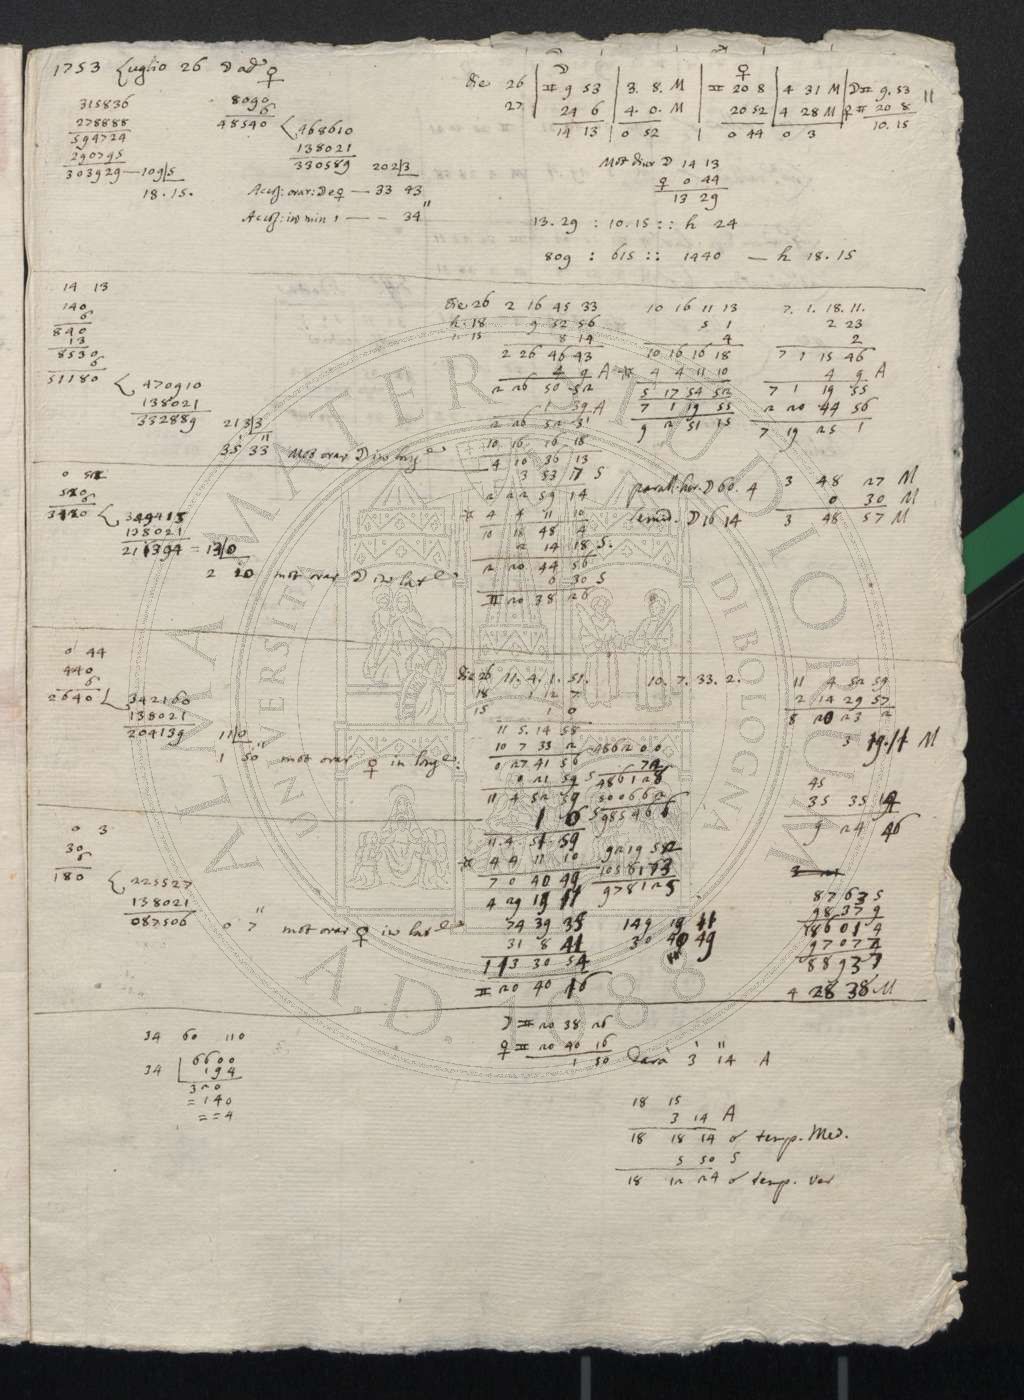 1753 Luglio 26 ☽ ad ♀
315836
278888
594724
290795
303929 — 109|5
18. 15.
8090
6
48540
468610
138021
330589 202|3
Accos: orar: ☽ e ♀ — 33 43
Accos: in min 1 — — 34"
die 26 | ♊ 9 53 | 3. 8. M | ♊ 20 8 | 4 31 M | ☽ ♊ 9. 53
27 | 24 6 | 4. 0. M | 20 52 | 4 28 M | ♀ ♊ 20 8
14 13 | 0 52 | 0 44 | 0 3 | 10. 15
11
Mot diur ☽ 14 13
♀ 0 44
13 29
13. 29 : 10. 15 :: h 24
809 : 615 :: 1440 — h 18. 15
14 13
140
6
840
13
8530
6
51180
470910
138021
332889 213|3
35' 33" mot orar ☽ in long.e
die 26 2 16 45 33
h. 18 9 52 56
m. 15 8 14
2 26 46 43
4 9 A
2 26 50 52
1 39 A
2 26 52 31
10 16 16 18
4 10 36 13
3 53 17 S
2 22 59 14
* 4 4 11 10
10 18 48 4
2 14 18 S.
2 20 44 56
0 30 S
♊ 20 38 26
10 16 11 13
5 1
4
10 16 16 18
* 4 4 11 10
5 17 54 52
7 1 19 55
9 2 51 15
7. 1. 18. 11.
2 23
2
7 1 15 46
4 9 A
7 1 19 55
2 20 44 56
7 19 25 1
parall. hor. ☽ 60. 4
semid. ☽ 16 14
3 48 27 M
0 30 M
3 48 57 M
0 52
520
6
3120
349415
138021
211394 = 13|0
2 10 mot orar ☽ in lat.e
0 44
440
6
2640
342160
138021
204139 11|0
1' 50" mot orar ♀ in long.e
die 26 11. 4. 1. 51.
18 1 12 7
15 1 0
11 5. 14 58
10 7 33 2
0 27 41 56
0 21 59 S
11 4 52 59
1 0 S
11. 4. 51 59
* 4 4 11 10
7 0 40 49
4 29 19 11
74 39 35
31 8 41
113 30 54
♊ 20 40 16
10. 7. 33. 2.
486200
74
486128
500662
985466
921958
1058173
978125
149 19 11
30 40 49
11 4 52 59
2 14 29 57
8 20 23 2
3 19. 11 M
45
35 35 14
9 24 46
87635
98379
186014
97077
88937
4 28 38 M
0 3
30
6
180
225527
138021
087506
0 7" mot orar ♀ in lat.e
34 60 110
34 | 6600
194
320
=140
==4
☽ ♊ 20 38 26
♀ ♊ 20 40 16
1 50 darà 3' 14" A
18 15
3 14 A
18 18 14 ☌ temp. Med.
5 50 S
18 12 24 ☌ temp. ver
ALMA MATER STUDIORUM
UNIVERSITÀ DI BOLOGNA
A.D. 1088